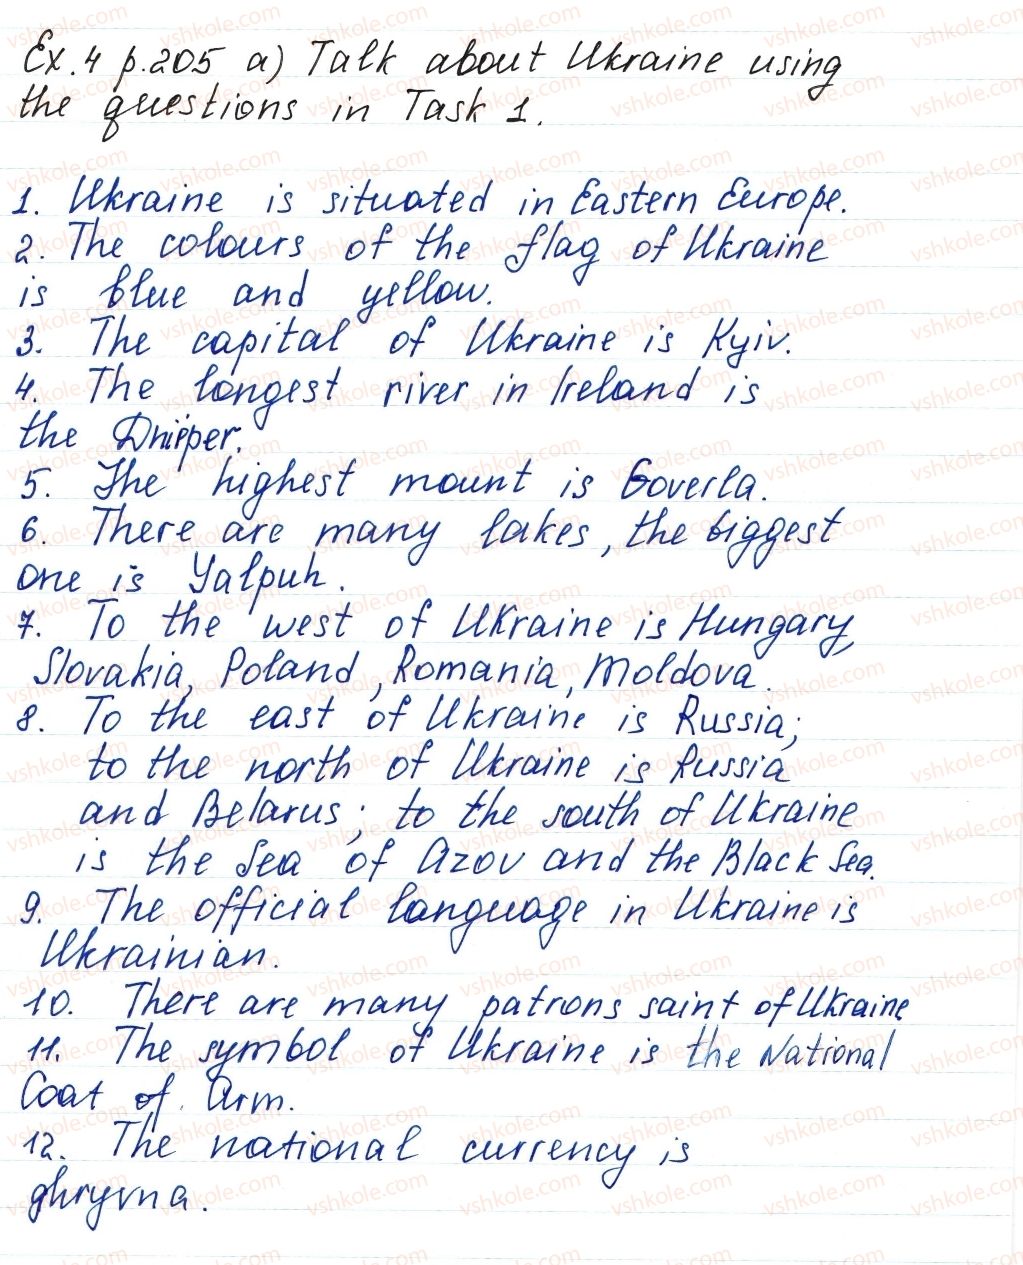 Ex. 4 p. 205 a) Talk about Ukraine using
the questions in Task 1.
1. Ukraine is situated in Eastern Europe.
2. The colours of the flag of Ukraine
is blue and yellow.
3. The capital of Ukraine is Kyiv.
4. The longest river in Ireland is
the Dnieper.
5. The highest mount is Goverla.
6. There are many lakes, the biggest
one is Yalpuh.
7. To the west of Ukraine is Hungary,
Slovakia, Poland, Romania, Moldova.
8. To the east of Ukraine is Russia;
to the north of Ukraine is Russia
and Belarus; to the south of Ukraine
is the Sea of Azov and the Black Sea.
9. The official language in Ukraine is
Ukrainian.
10. There are many patrons saint of Ukraine
11. The symbol of Ukraine is the National
Coat of Arm.
12. The national currency is
ghryvna.